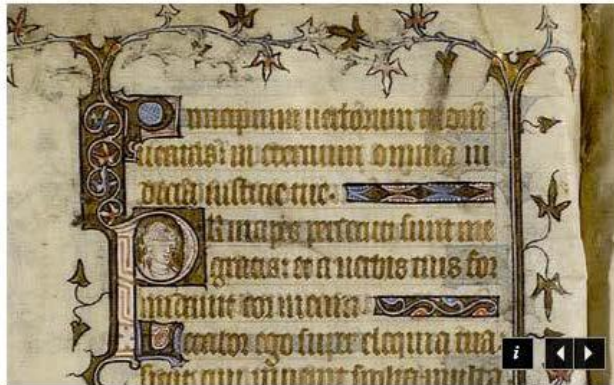 Principium uerborum
ueritas: in eternum omnia iu
dicia iusticie tue.
Principes persecuti sunt me
gratis: et a uerbis tuis for
midauit cor meum.
Letabor ego super eloquia tua
sicut qui inuenit spolia multa